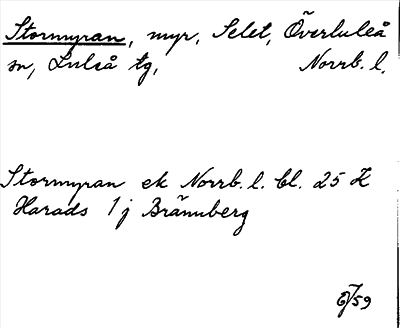 Stormyran, myr, Selet, Överluleå
sn, Luleå tg, Norrb. l.
Stormyran ek Norrb. l. bl. 25 K
Harads 1 j Brännberg
59